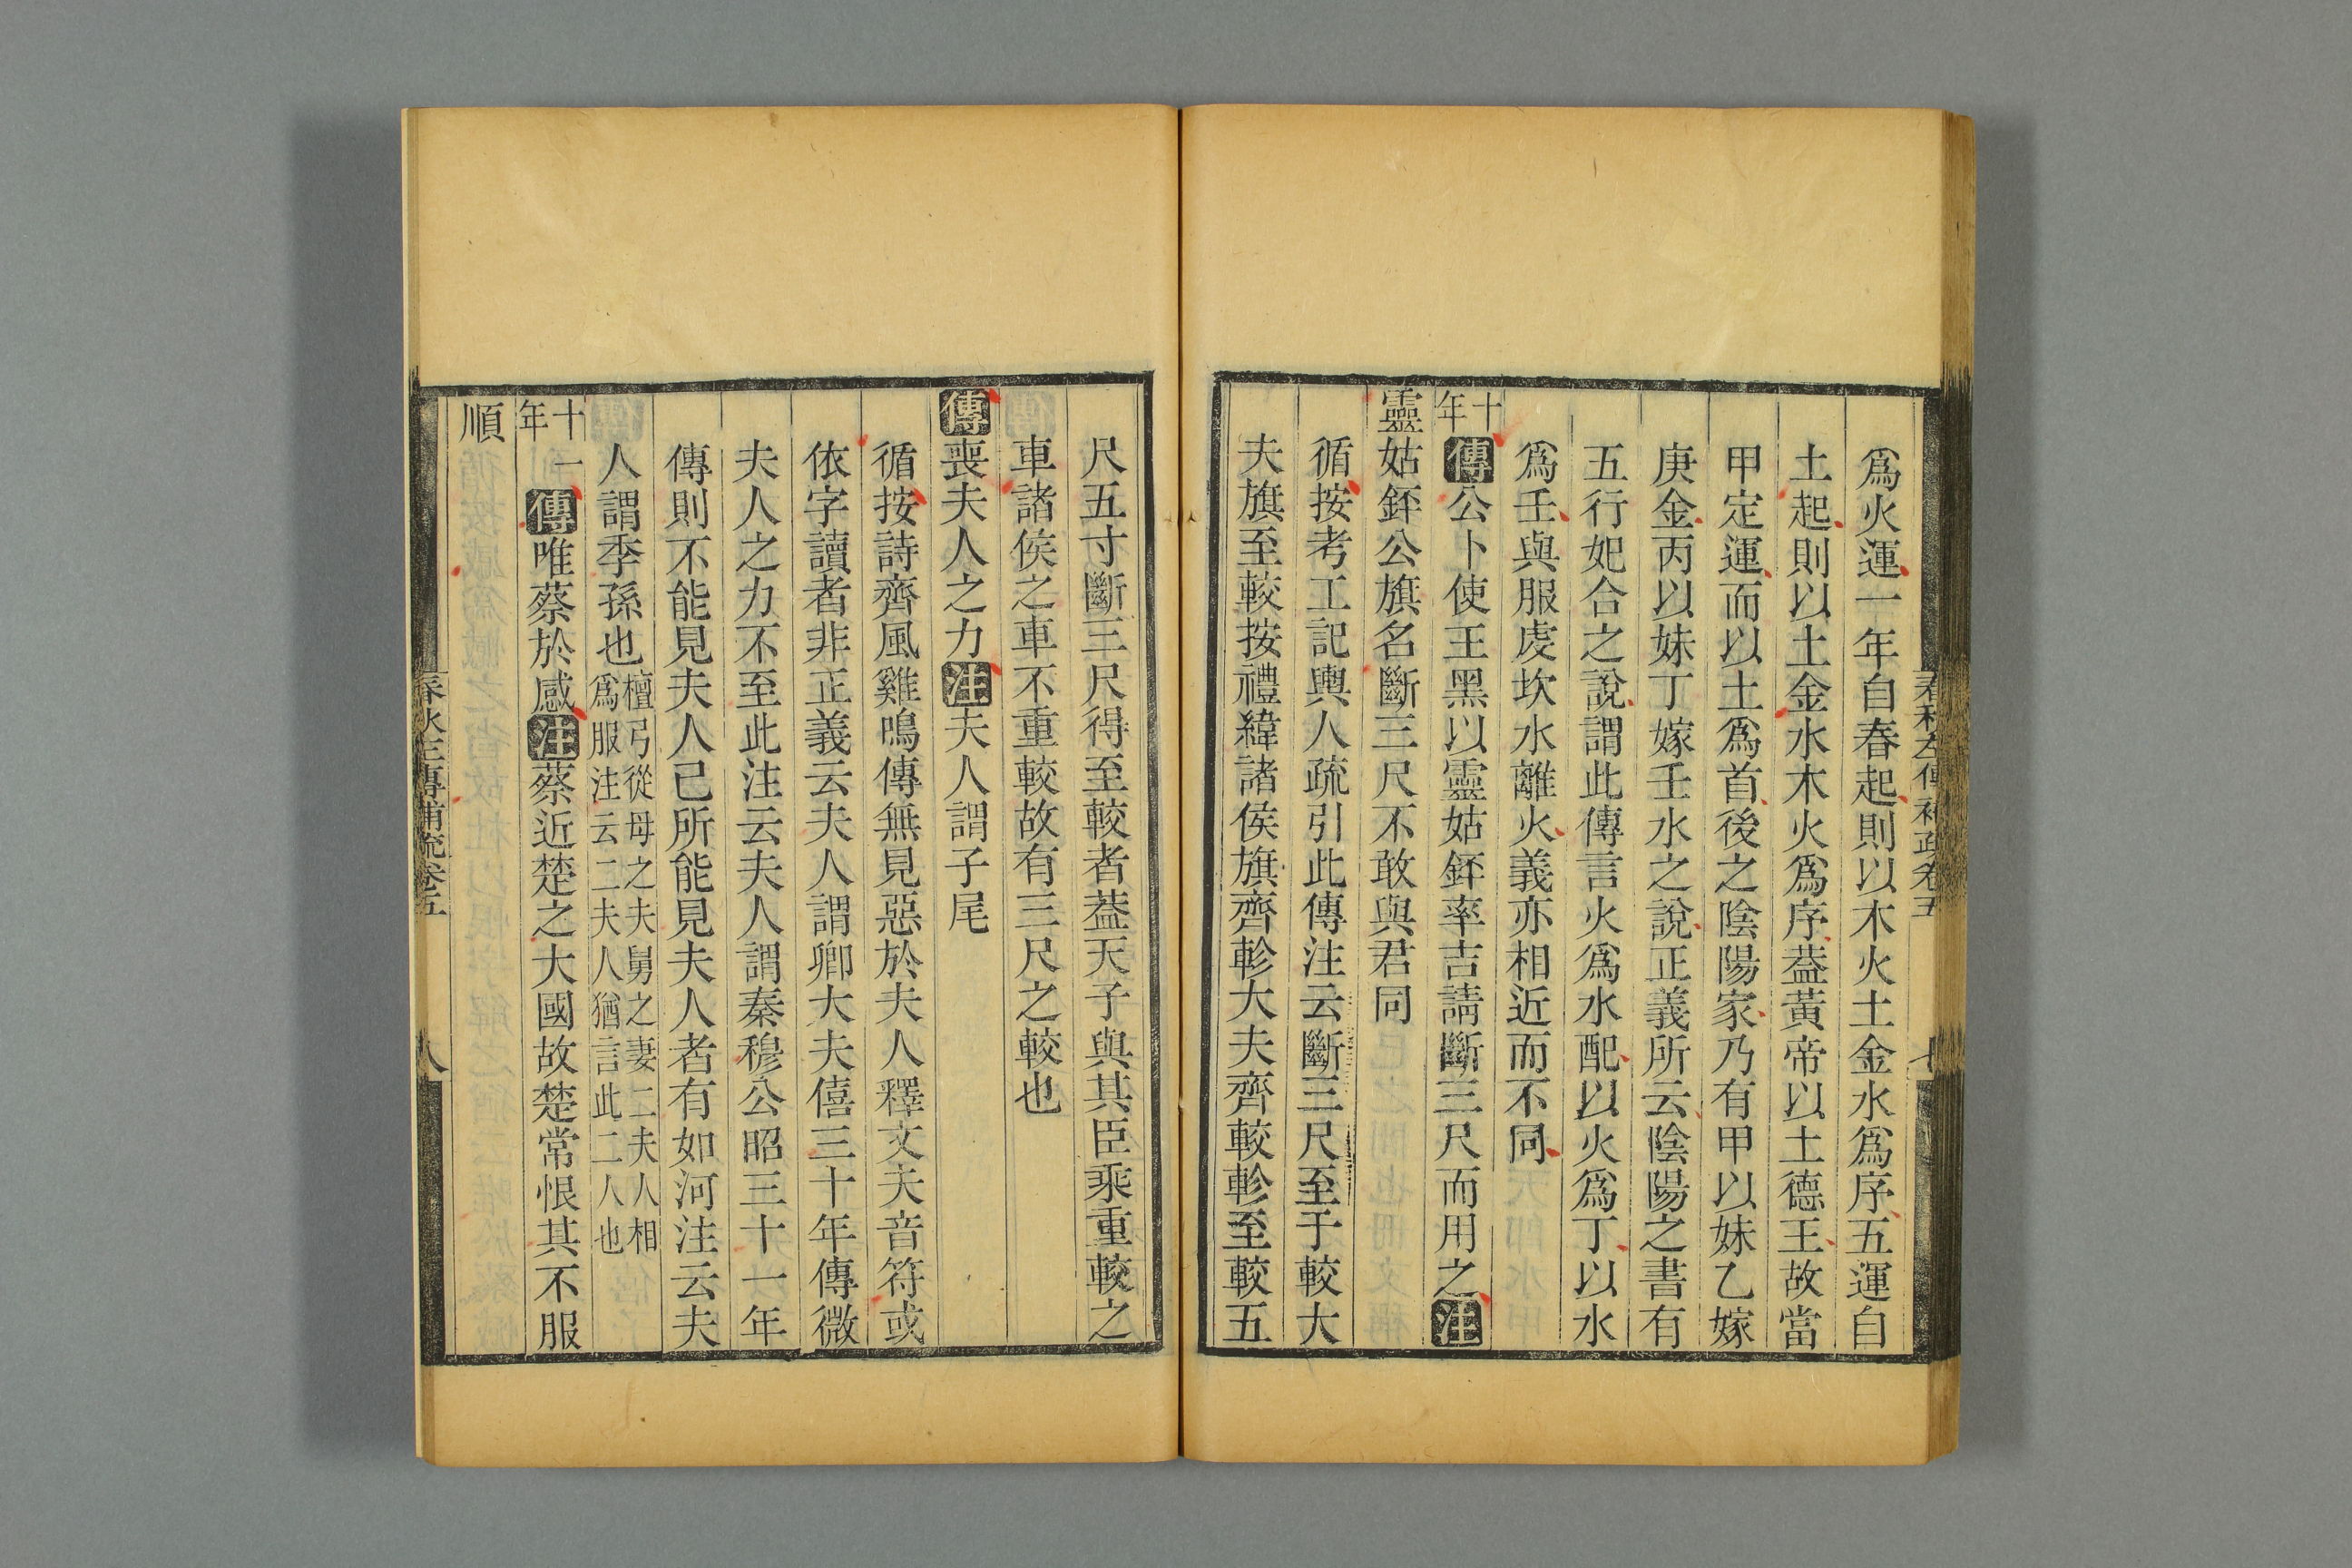 爲火運一年自春起則以木火土金水爲序五運自
土起則以土金水木火爲序葢黃帝以土德王故當
甲定運而以土爲首後之陰陽家乃有甲以妹乙嫁
庚金丙以妹丁嫁壬水之說正義所云陰陽之書有
五行妃合之說謂此傳言火爲水配以火爲丁以水
爲壬與服虔坎水離火義亦相近而不同
十年傳公卜使王黑以靈姑銔率吉請斷三尺而用之注
靈姑銔公旗名斷三尺不敢與君同
循按考工記輿人疏引此傳注云斷三尺至于較大
夫旗至較按禮緯諸侯旗齊軫大夫齊較軫至較五
尺五寸斷三尺得至較者葢天子與其臣乘重較之
車諸侯之車不重較故有三尺之較也
傳喪夫人之力注夫人謂子尾
循按詩齊風雞鳴傳無見惡於夫人釋文夫音符或
依字讀者非正義云夫人謂卿大夫僖三十年傳微
夫人之力不至此注云夫人謂秦穆公昭三十一年
傳則不能見夫人已所能見夫人者有如河注云夫
人謂季孫也檀弓從母之夫舅之妻二夫人相
爲服注云二夫人猶言此二人也
十一年傳唯蔡於感注蔡近楚之大國故楚常恨其不服
順
春秋左傳補疏卷五
七
春秋左傳補疏卷五
八